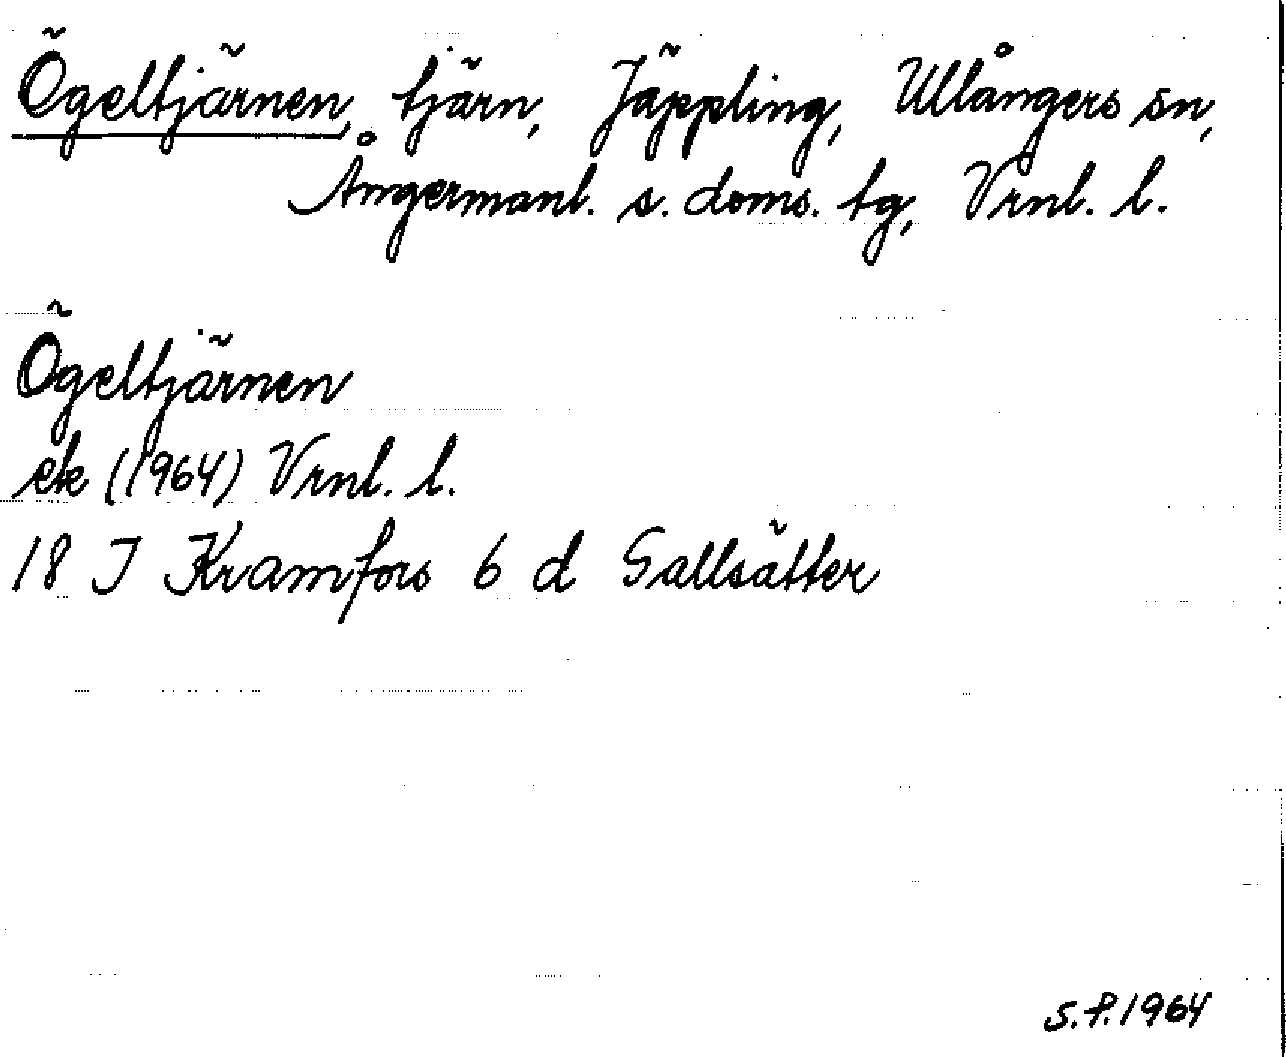 Ögeltjärnen, tjärn, Jäppling, Ullångers sn,
Ångermanl. s. doms. tg, Vrnl. l.
Ögeltjärnen
ek (1964) Vrnl. l.
18 J Kramfors 6 d Gallsätter
S.P.1964